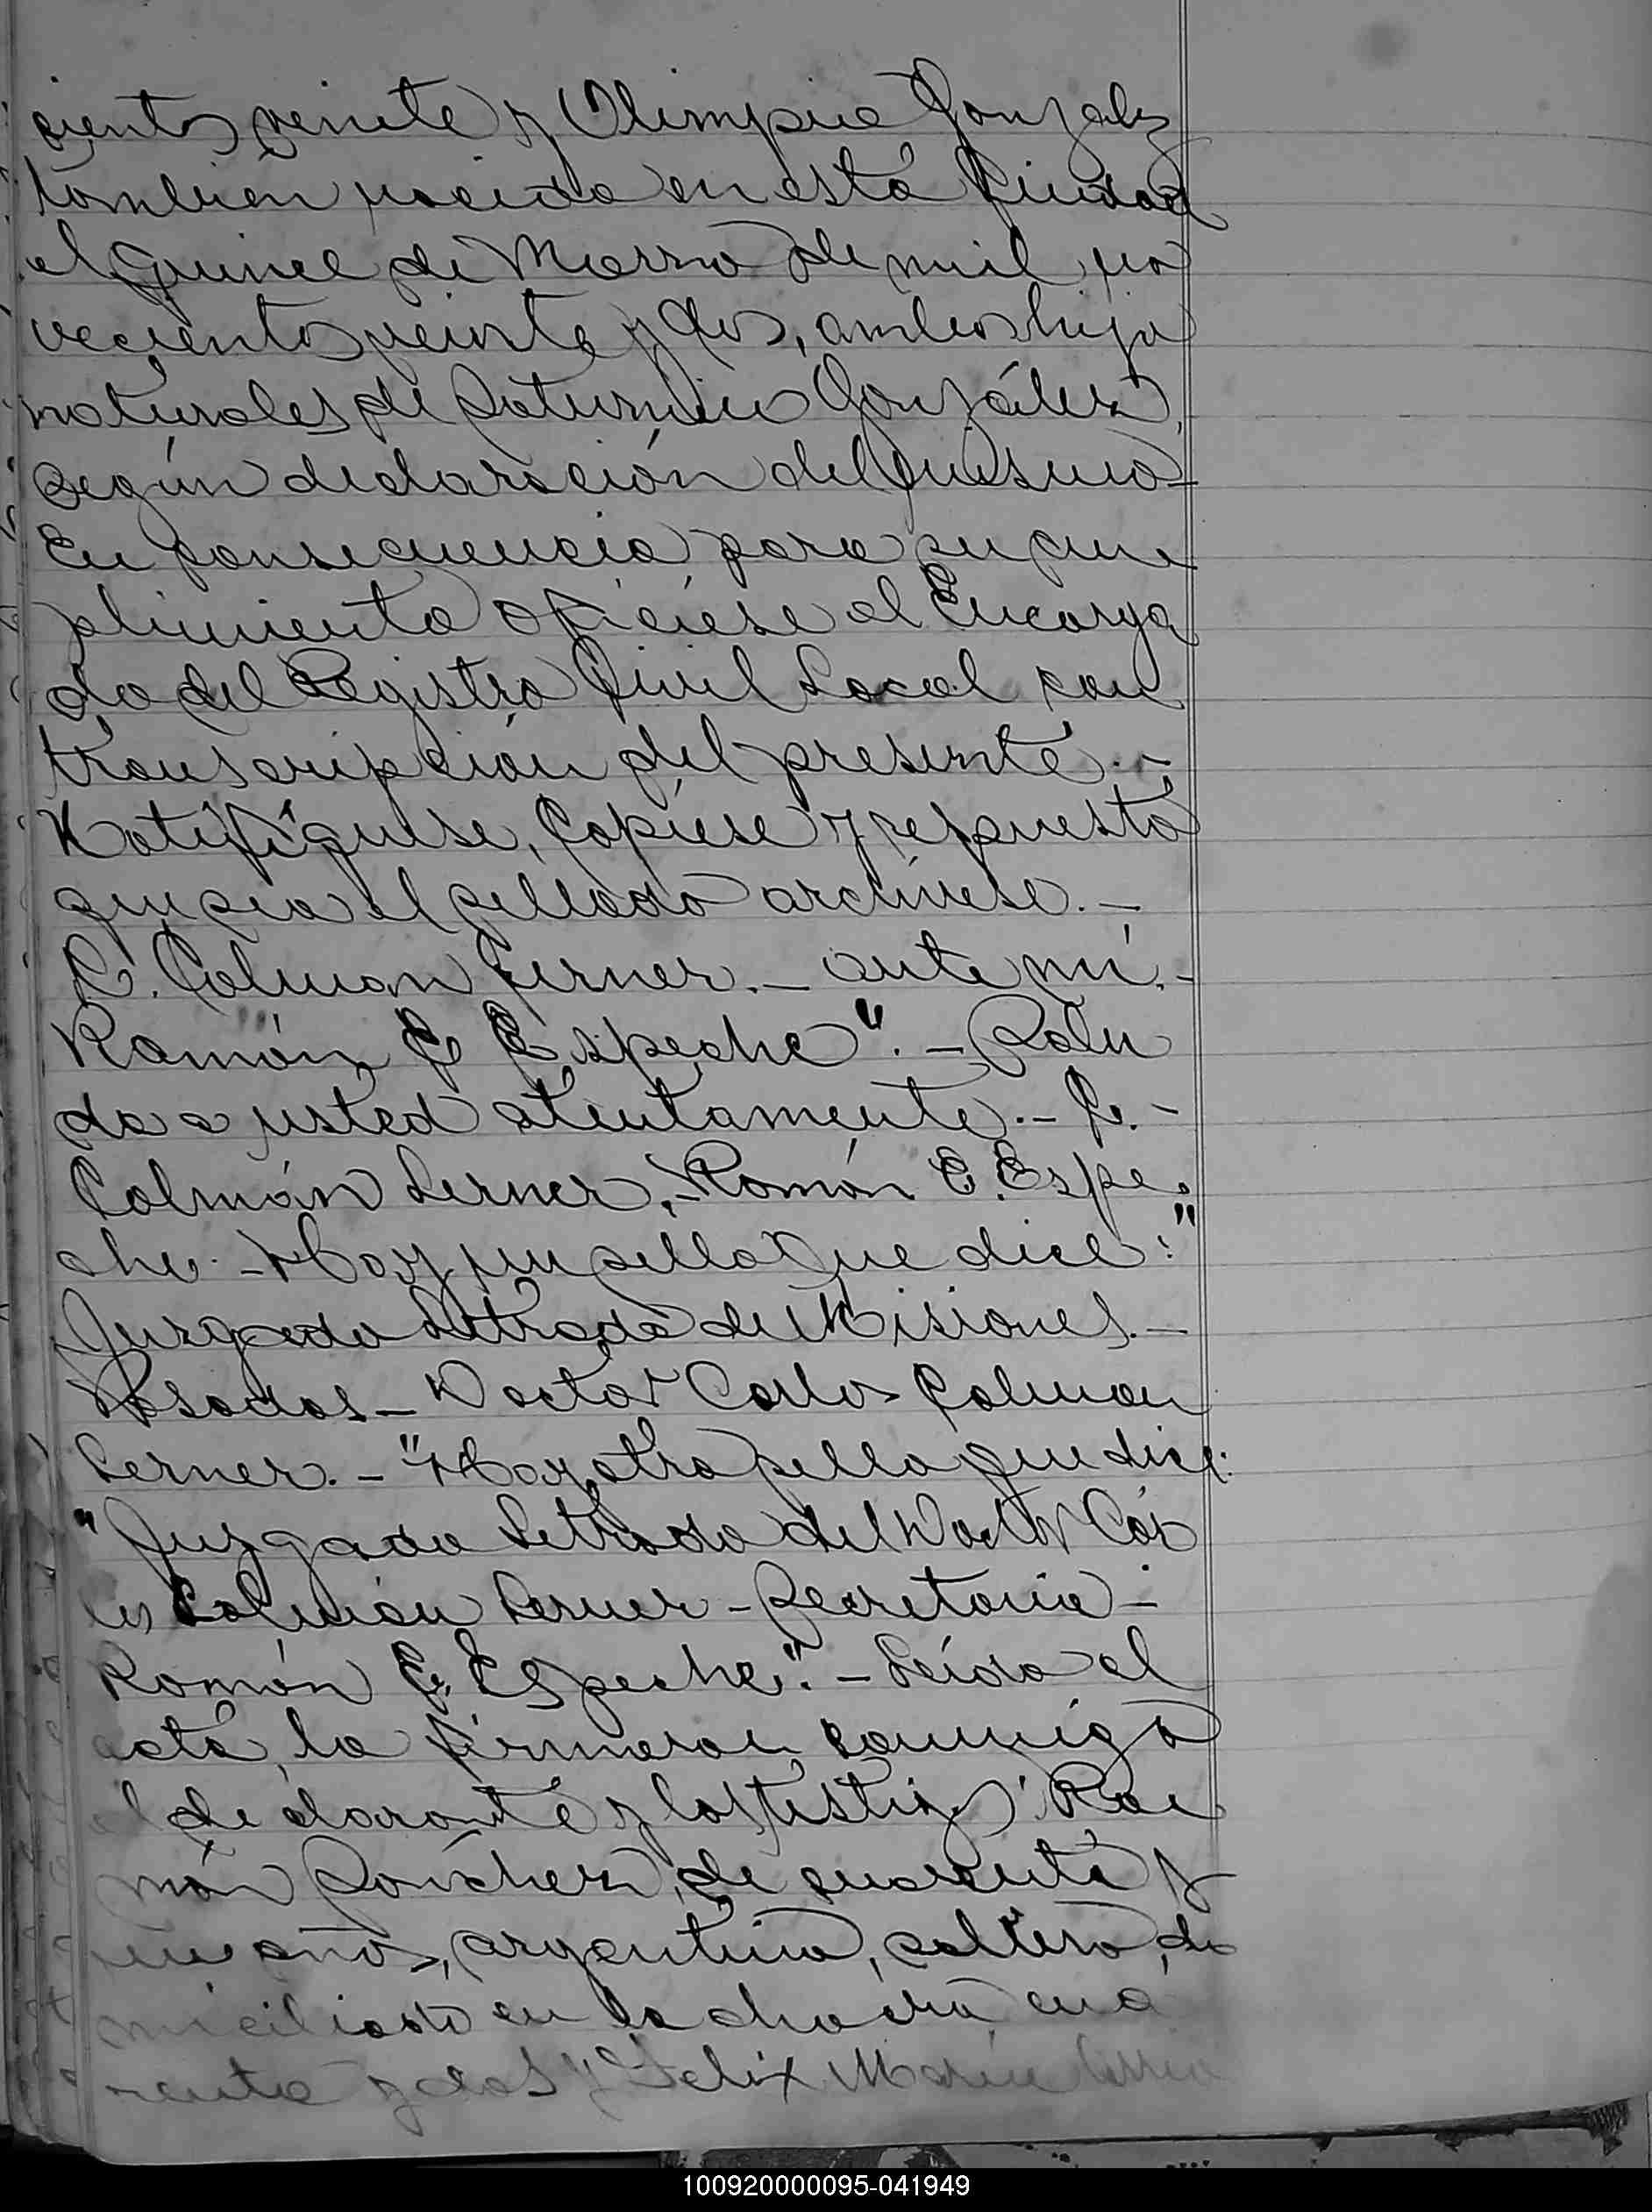 cientos veinte y Olimpia Gonzalez
tambien nacida en esta Ciudad
el quince de Marzo de mil no
vecientos veinte y dos, ambos hijos
naturales de Saturnino González,
según declaración del mismo
En consecuencia para su cum
plimiento ofíciese al Encarga
do del Registro Civil Local con
transcripción del presente.-
Notifíquese, Cópiese y repuesto
que sea el sellado archívese.-
C. Colman Lerner.- ante mí.-
Ramón E Espeche".- Salu
do a usted atentamente.- C.-
Colmán Lerner.- Ramón E. Espe
che.- Hay un sello que dice:"
Juzgado Letrado de Misiones.-
Posadas- Doctor Carlos Colman
Lerner.-" Hay otro sello que dice:
"Juzgado Letrado del Doctor Car
los Colmán Lerner - Secretaria -
Ramón E. Espeche".- Leída el
acta, la firmaron conmigo
el declarante y los testigos: Ra
món Sánchez, de cuarenta y
un años, argentino, soltero, do
miciliado en la chacra cua
renta y dos y Felix Marin
100920000095-041949